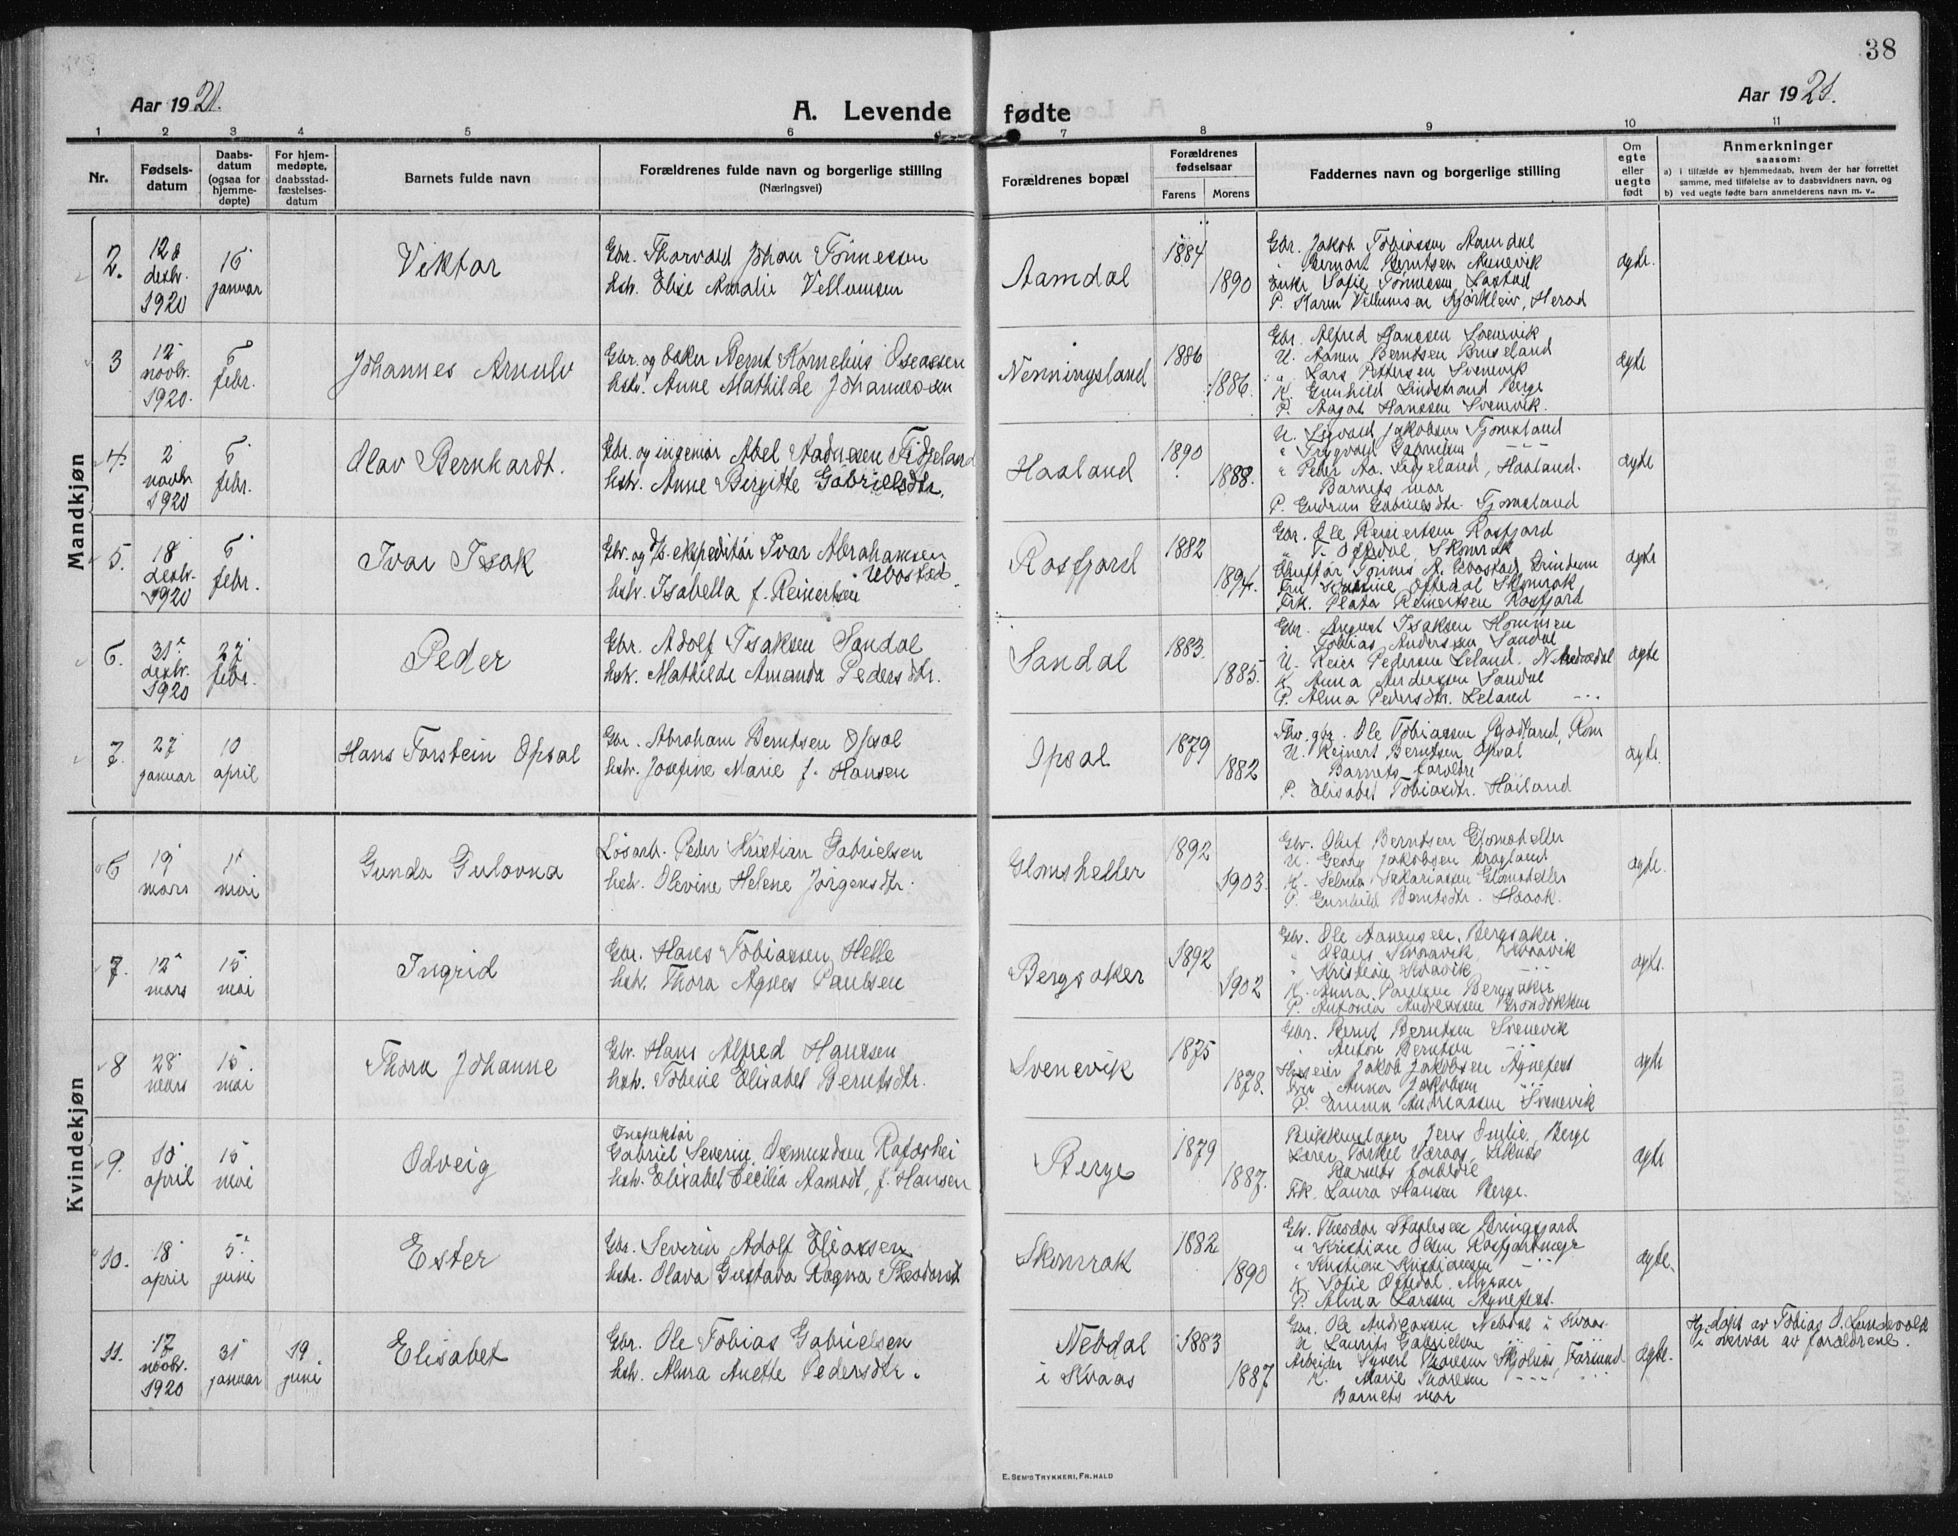 38
Aar 1921.
A. Levende fødte
Aar 1921.
1 2 3 4 5 6 7 8 9 10 11
Nr.
Fødsels-
datum
Daabs-
datum
(ogsaa for
hjemme-
døpte)
For hjem-
medøpte,
daabsstad-
fæstelses-
datum
Barnets fulde navn
Forældrenes fulde navn og borgerlige stilling
(Næringsvei)
Forældrenes bopæl
Forældrenes
fødselsaar
Farens Morens
Faddernes navn og borgerlige stilling
Om
egte
eller
uegte
født
Anmerkninger
saasom:
a) i tilfælde av hjemmedaab, hvem der har forrettet
samme, med tilføielse av to daabsvidners navn, og
b) ved uegte fødte barn anmelderens navn m. v..
Mandkjøn
2.
desbr.
1920
januar
Viktor
Gbr. Thorvald Johan Tönnessen
hstr. Elise Amalie Vellumsen
Aamdal
1884
1890
Gbr. Jakob Tobiassen Aamdal
Enke Sofie Tönnessen
P. Karen Vellumsen Herad
ægte.
3
12
novbr.
1920.
6
febr.
Johannes Arnulv
Gbr. og baker Bernt Kornelius Oseassen
hstr. Anne Mathilde Johannessen
Nenningsland
1886
1886.
Gbr. Alfred Hanssen Svenevik
U. Aanen Berntsen Briseland
" Lars Pettersen Svenevik
K. Gunhild Lindstrand Berge
P. Aagot Hanssen Svenevik.
ægte
4.
2
novbr
1920
6
febr.
Olav Bernhardt.
Gbr. og ingeniør Abel Aadnesen Fidjeland
hstr. Anne Bergitte Gabrielsdtr.
Haaland
1890
1888.
U. Sigvald Jakobsen Tjomsland
" Trygvald Gabrielsen
" Peder Aa. Fidjeland, Haaland.
Barnets mor
P. Gudrun Gabrielsdtr. Tjomsland
ægte
5.
18
desbr.
1920
6
febr.
Ivar Isak
Gbr. og D/S. ekspeditør Ivar Abrahamsen
Ubostad
hstr. Isabella f. Reinertsen
Rosfjord
1882
1894.
Gbr. Ole Reinertsen Rosfjord
" T. Oftedal, Skomrak
Frk. Reinertsen Rosfjord
ægte
6.
31
desbr.
1920
27
febr.
Peder
Gbr. Adolf Isaksen Sandal
hstr. Mathilde Amanda Pedersdtr.
Sandal
1883.
1885.
Gbr. August Isaksen Hommen
" Tobias Anderssen Sandal
U. Reier Pedersen Leland.
K. Anna Andreassen Sandal
P. Alma Pedersdtr. Leland
ægte
7.
27
januar
10
april
Hans Torstein Opsal
Gbr. Abraham Berntsen Opsal
hstr. Josefine Marie f. Hansen
Opsal
1879
1882
Fhv. gbr. Ole Tobiassen
U. Reinert Berntsen Opsal
Barnets forældre
P. Elisabet Tobiasdtr. Haaland
ægte.
Kvindekjøn
6
19
mars
1
mai
Gunda Gulovna
Løsarb. Peder Kristian Gabrielsen
hstr. Olevine Helene Jörgensdtr.
Glomsheller
1892
1903.
Gbr. Oluf Berntsen Glomsheller
U. Georg Jakobsen
K. Selma Sakariassen Glomsheller
P. Gunhild Berntsdtr.
ægte.
7.
12
mars
15
mai
Ingrid
Gbr. Hans Tobiassen Helle
hstr. Thora Agnes Paulsen
Bergsaker
1892
1902
Gbr. Ole Aanensen Bergsaker
" Kristian Kvavik
K. Anna Paulsen Bergsaker
P. Antonia Andreassen
ægte.
8
28
mars
15.
mai
Thora Johanne
Gbr. Hans Alfred Hanssen
hstr. Tobine Elisabet Berntsdtr.
Svenevik
1875
1878.
Gbr. Bernt Berntsen Svenevik
" Anton Berntsen
Jakob Jakobsen Agnefest
Anna Jakobsen
P. Emma Andreassen Svenevik
ægte
9.
10
april
15
mai
Odveig
Inspektör
Gabriel Severin Osmundsen Rafoshei
hstr. Elisabet Cecilia Aamodt, f. Hansen
Berge
1879
1887.
Jens Omlie, Berge
Lærer Torkel
Barnets forældre
Frk. Laura Hansen Berge.
ægte
10.
18
april
5
juni
Ester
Gbr. Severin Adolf Eliassen
hstr. Olava Gustava Ragna Theodorsdt
Skomrak
1882
1890
Gbr. Theodor Bringsjord
" Kristian Olsen Rosfjord
" Kristian Kristiansen
K. Sofie Oftedal,
P. Alma Larssen Agnefest.
ægte.
11.
17
novbr.
1920
31
januar
19
juni
Elisabet
Gbr. Ole Tobias Gabrielsen
hstr. Alma Anette Pedersdtr.
Nebdal
i Kvaas
1883
1887
Gbr. Ole Andreassen Nebdal i Kvaas.
U Laurits Gabrielsen
Arbeider Syvert Thorsen Farsund
K. Marie Thorsen
Barnets mor
ægte.
Hj. døpt av Tobias O. Lundevold
i overvær av forældrene.
E. SEM'S TRYKKERI, FR. HALD